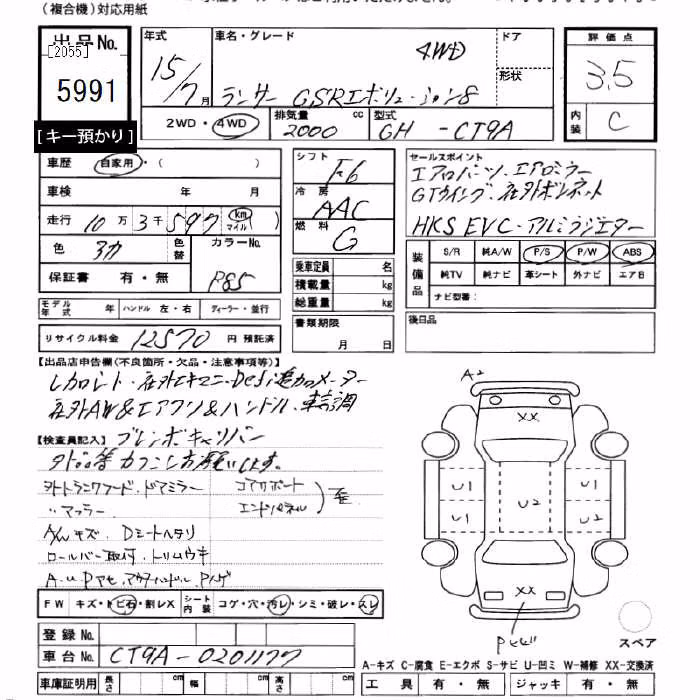 (複合機)対応用紙
出品No.
[2055]
5991
[キー預かり]
年式
15/7月
車名・グレード
4WD
ランサー GSRエボリューション8
ドア
形状
評価点
3.5
内装
C
2WD・4WD
排気量
2000 cc
型式
GH - CT9A
車歴 自家用・( )
車検 年 月
走行 10万3千597 km マイル
色 カラーNo.
色替
P85
保証書 有・無
モデル年式 年 ハンドル 左・右 ディーラー・並行
リサイクル料金 12570 円 預託済
シフト
F6
冷房
AAC
燃料
G
乗車定員 名
積載量 kg
総重量 kg
書類期限
月 日
セールスポイント
エアロパーツ、エアロミラー
GTウイング、社外ボンネット
HKS EVC・アルミラジエター
装備品
S/R 純A/W P/S P/W ABS
純TV 純ナビ 革シート 外ナビ エアB
ナビ型番:
後日品
【出品店申告欄(不良箇所・欠品・注意事項等)】
レカロシート・社外エキマニ・Defi追加メーター
社外AW&エアクリ&ハンドル、車高調
【検査員記入】 ブレンボキャリパー
ヲトトランクフード、ドアミラー
〃マフラー
コアサポート
エンドパネル
歪
A/Wキズ、Dシートヘタリ
ロールバー取付、トリムウキ
FW キズ・トビ石・割レX シート内装 コゲ・穴・汚レ・シミ・破レ・スレ
登録No.
車台No. CT9A-0201177
車庫証明用 長さ cm 幅 cm 高さ cm
A2
XX
U1
U1
U2
U1
U2
XX
Pトビ
スペア
A-キズ C-腐食 E-エクボ S-サビ U-凹ミ W-補修 XX-交換済
工具 有・無 ジャッキ 有・無